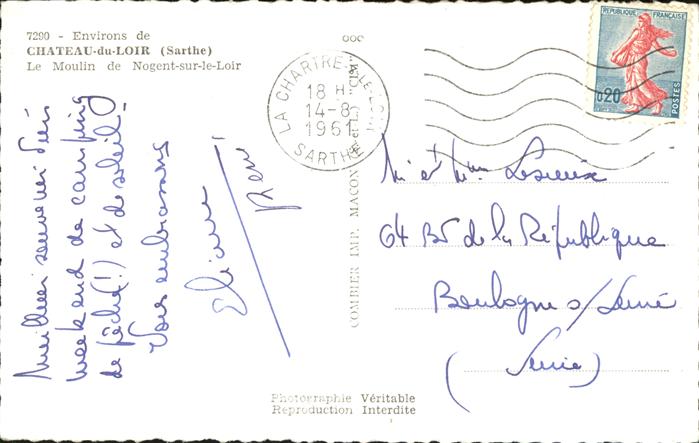 7290 - Environs de
CHATEAU-du-LOIR (Sarthe)
Le Moulin de Nogent-sur-le-Loir
Meilleur souvenir d'un
week end de camping
de pêche (!) et de soleil.
Vous embrassons
Eliane
René
LA CHARTRE-S-LE-LOIR
18 H
14-8
1961
SARTHE
COMBIER IMP. MACON (S.-et-L.) "CIM"
REPUBLIQUE FRANÇAISE
0,20
POSTES
Mr et Mme Lesieux
64 Bd de la République
Boulogne s/ Seine
(Seine)
Photographie Véritable
Reproduction Interdite